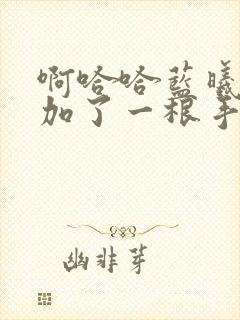 啊哈哈蓝曦
加了一根手
幽非芽